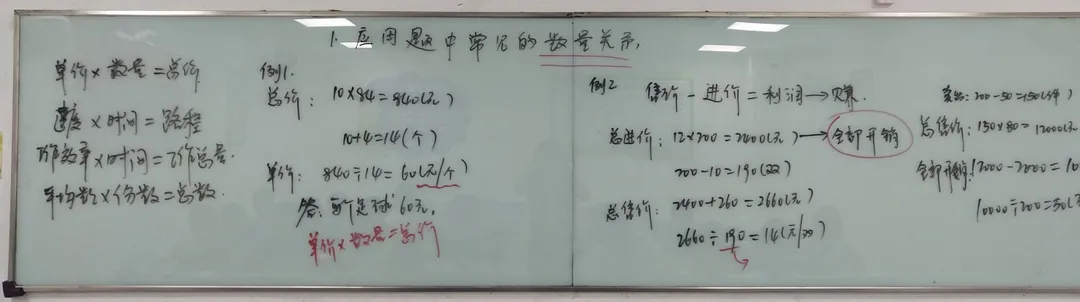 1. 应用题中常见的数量关系.
单价×数量=总价
速度×时间=路程
工作效率×时间=工作总量.
平均数×份数=总数.
例1.
总价: 10×84=840(元)
10+4=14(个)
单价: 840÷14=60(元/个)
答: 每个足球60元.
单价×数量=总价
例2 售价-进价=利润→赚.
总进价: 12×200=2400(元)→全部开销
200-10=190(双)
总售价: 2400+260=2660(元)
2660÷190=14(元/双)
卖出: 200-50=150(件)
总售价: 150×80=12000(元
全部开销: 12000-2000=10
10000÷200=50(元